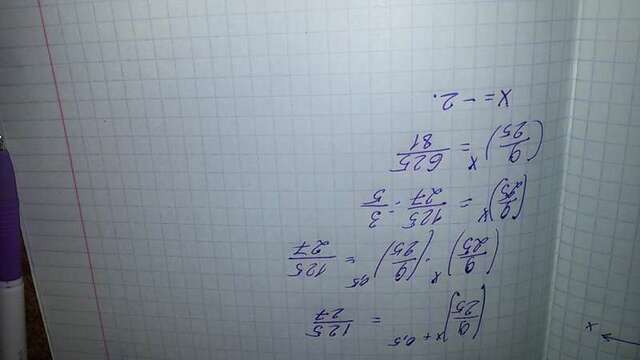 x
(9/25)^(x + 0,5) = 125/27
(9/25)^x · (9/25)^0,5 = 125/27
(9/25)^x = 125/27 : 3/5
(9/25)^x = 625/81
x = - 2.